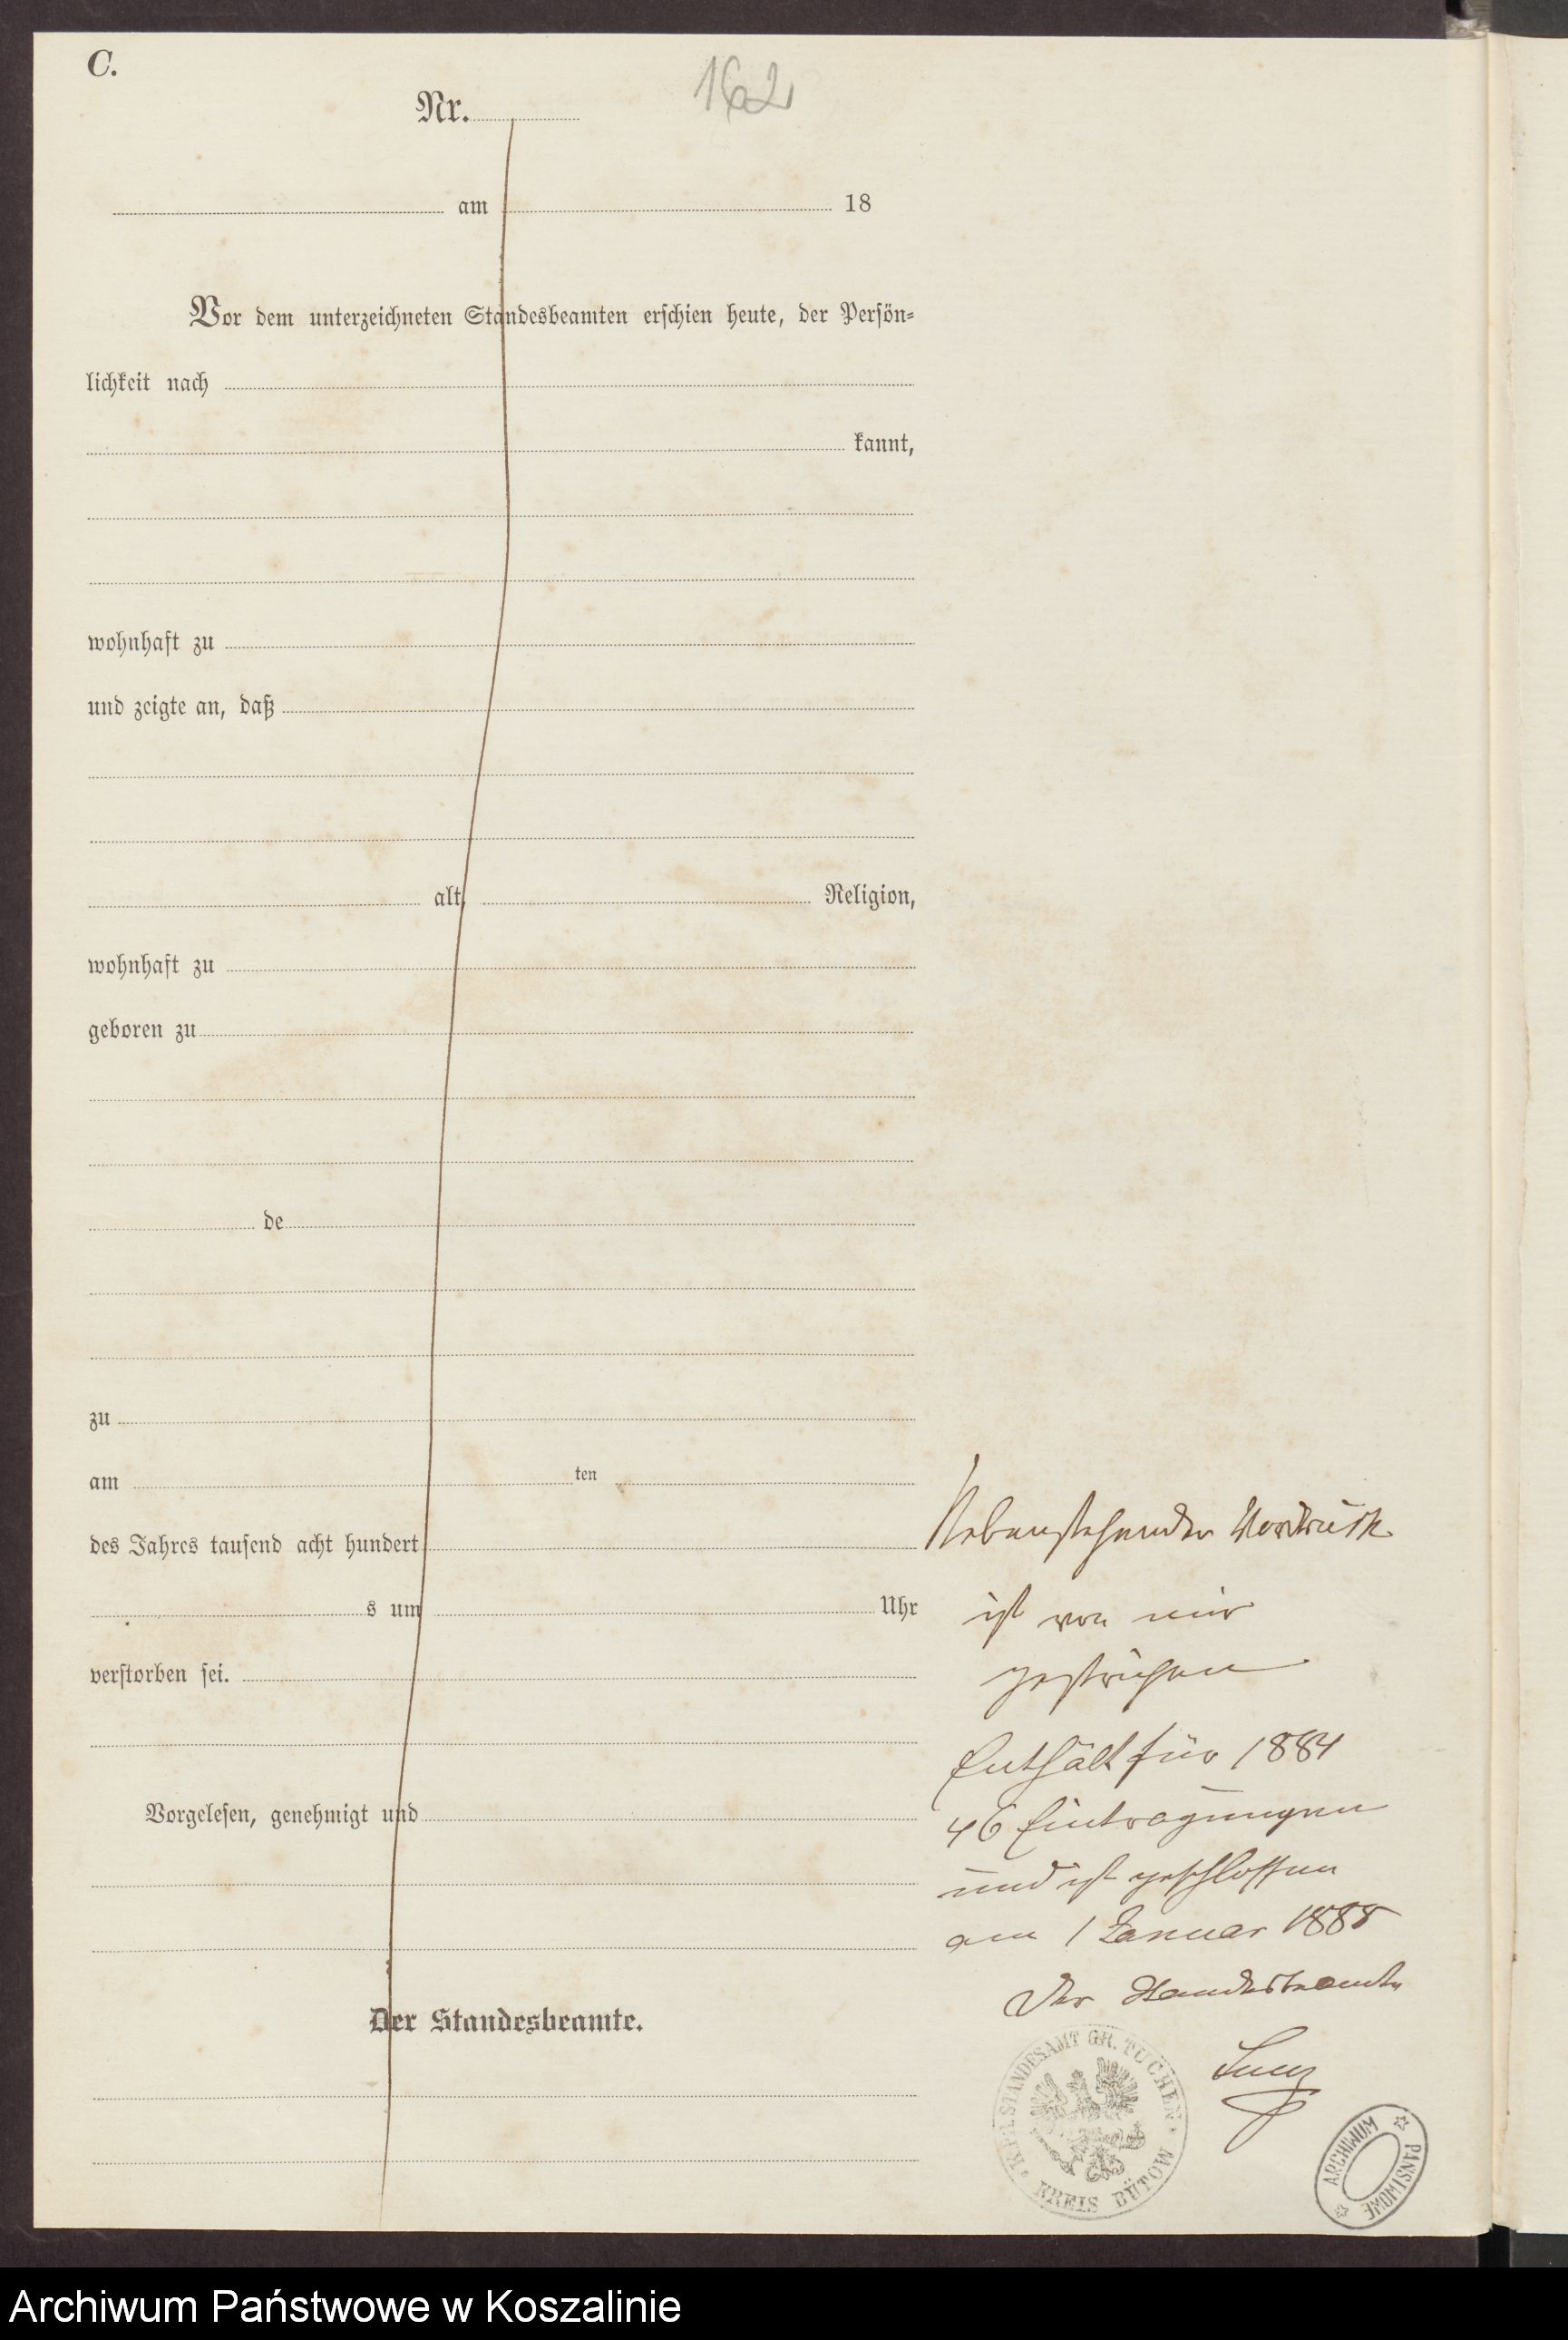 C.
Nr.
162
am 18
Vor dem unterzeichneten Standesbeamten erschien heute, der Persön=
lichkeit nach
kannt,
wohnhaft zu
und zeigte an, daß
alt, Religion,
wohnhaft zu
geboren zu
de
zu
am ten
des Jahres tausend acht hundert
s um Uhr
verstorben sei.
Vorgelesen, genehmigt und
Der Standesbeamte.
Nebenstehender Vordruck
ist von mir
gestrichen
Enthält für 1884
46 Eintragungen
und ist geschlossen
am 1 Januar 1885
Der Standesbeamte
KGL. STANDESAMT GR. TUCHEN
KREIS BÜTOW
ARCHIWUM
PAŃSTWOWE
Archiwum Państwowe w Koszalinie